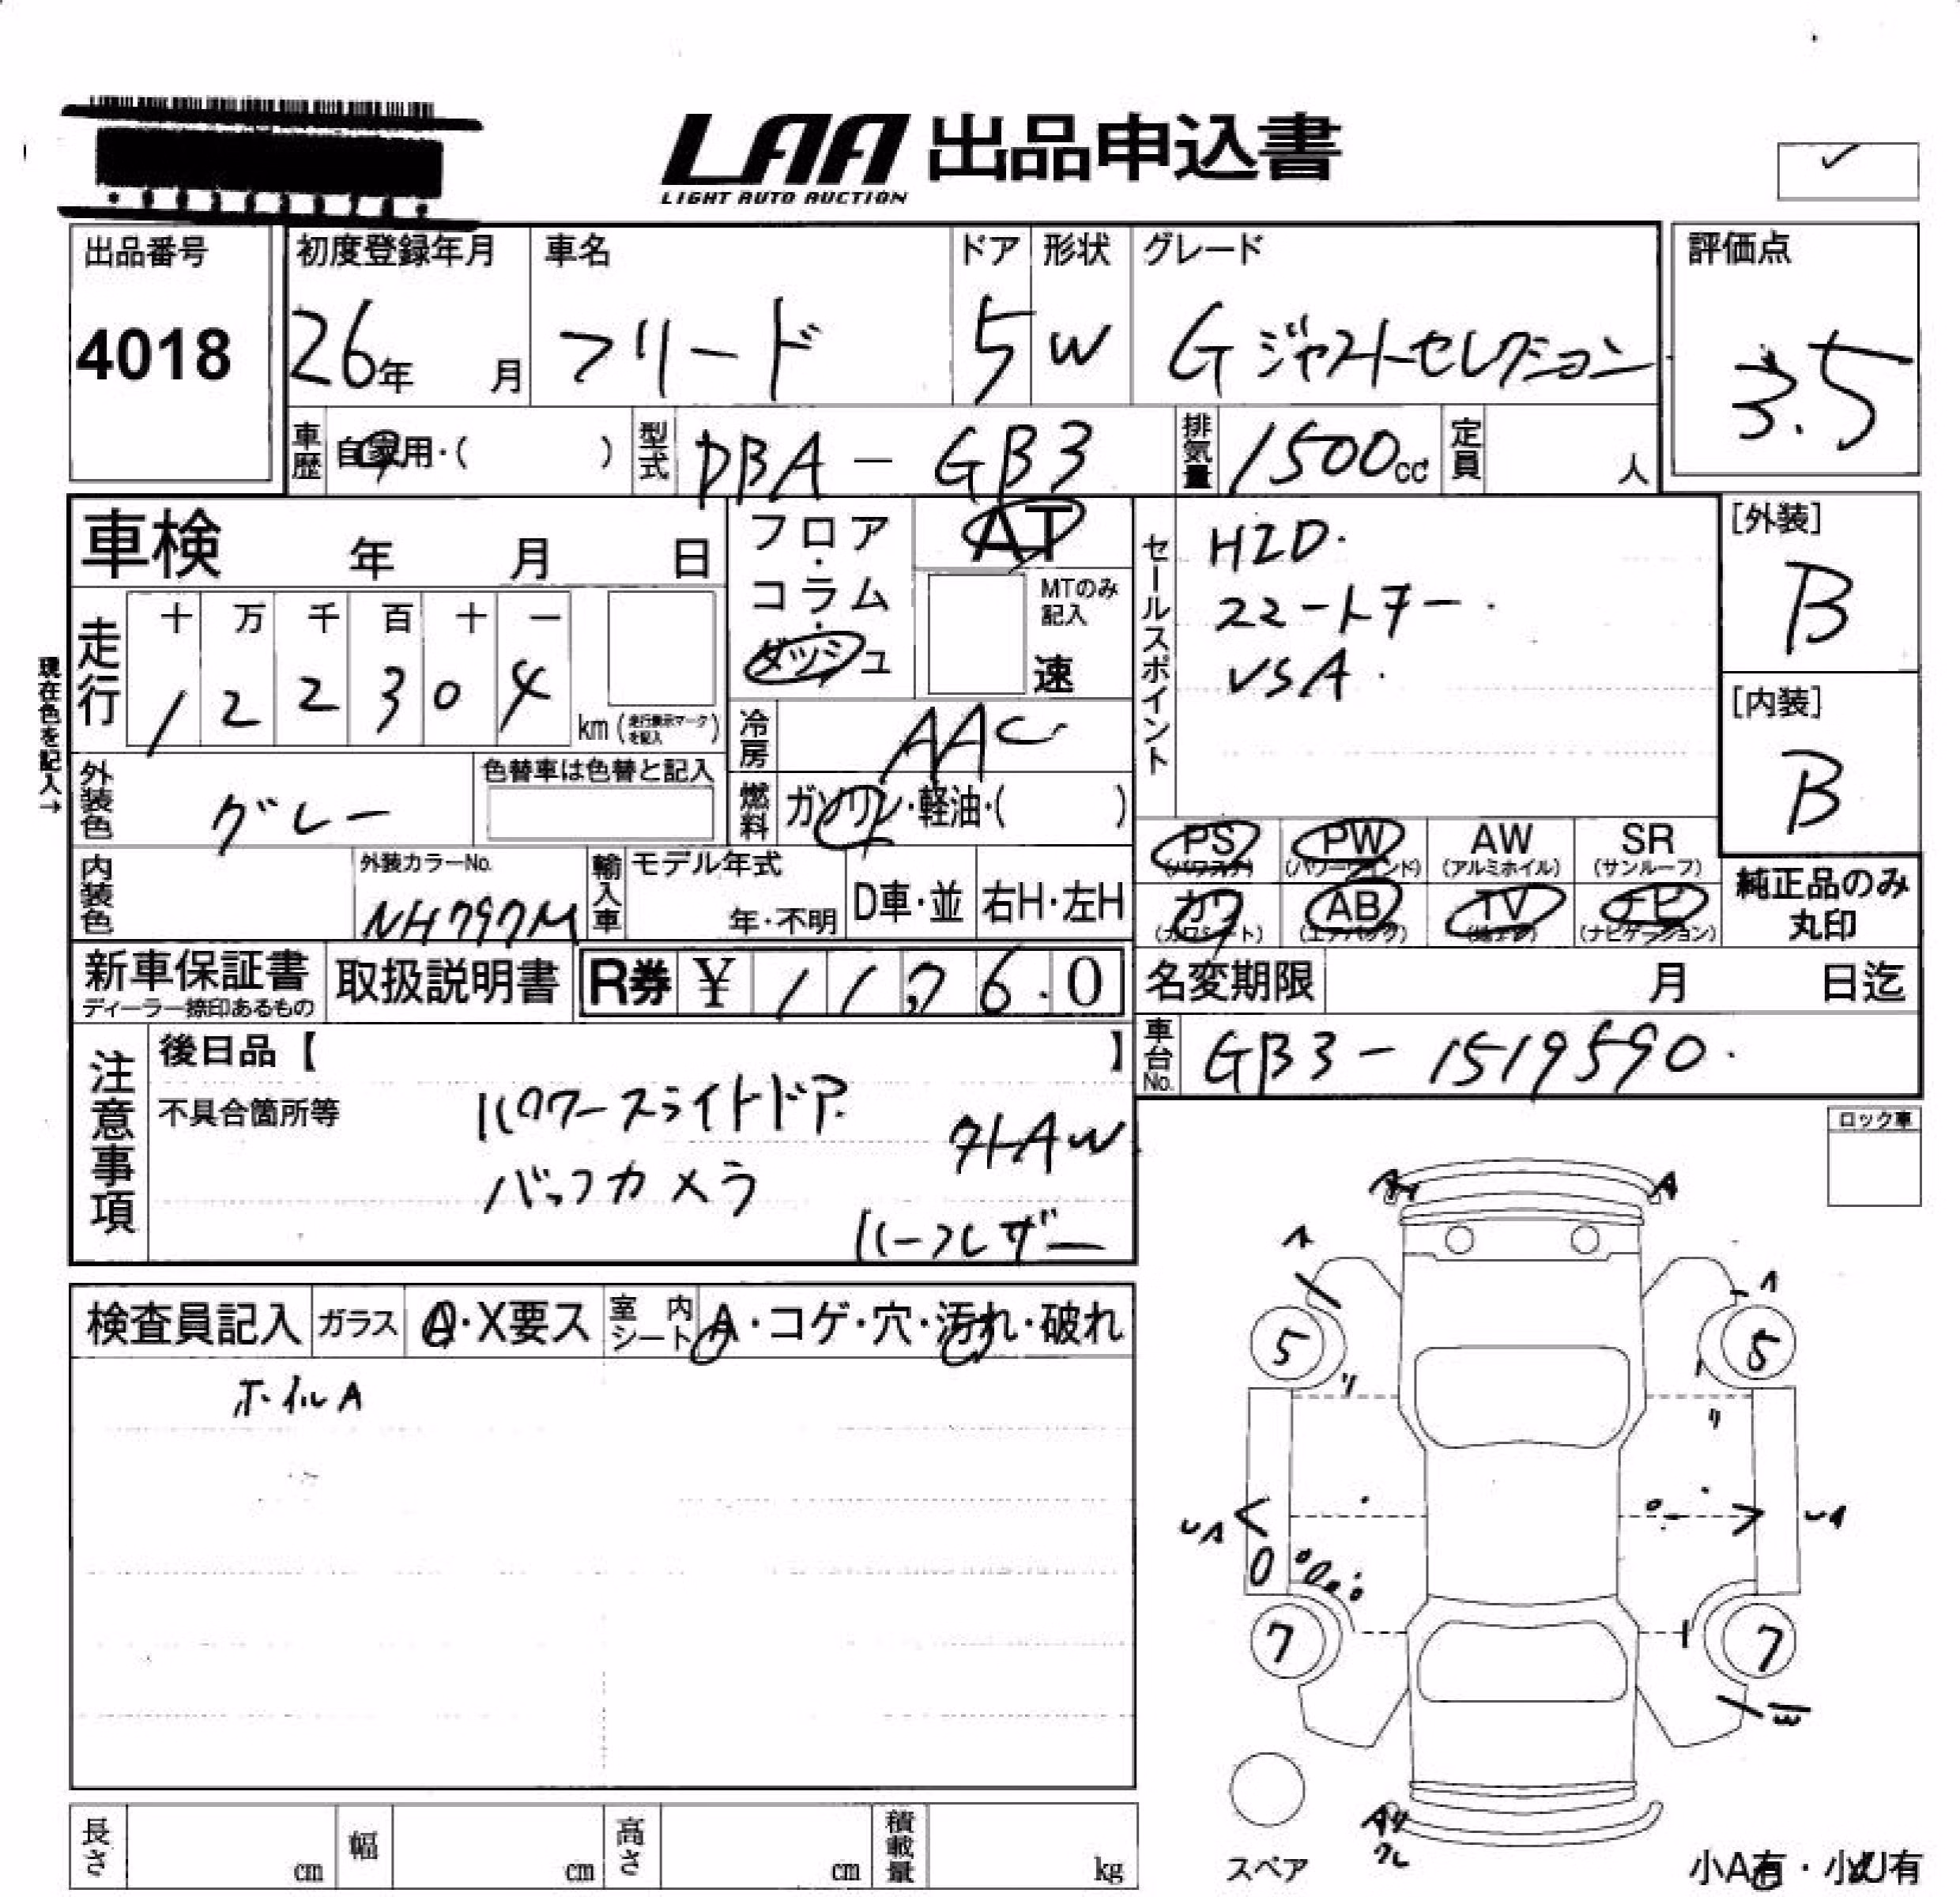 LAA 出品申込書
LIGHT AUTO AUCTION
出品番号
4018
初度登録年月
26年 月
車名
フリード
ドア
5
形状
W
グレード
G ジャストセレクション
評価点
3.5
車歴
自家用・( )
型式
DBA - GB3
排気量
1500cc
定員
人
車検 年 月 日
フロア・コラム・ダッシュ
AT
MTのみ記入
速
セールスポイント
HID.
シートヒーター.
VSA.
[外装]
B
[内装]
B
現在色を記入→
走行
十 万 千 百 十 一
1 2 2 3 0 4
km (走行表示マークを記入)
冷房
AAC
外装色
グレー
色替車は色替と記入
燃料
ガソリン・軽油・( )
PS
(パワステ)
PW
(パワーウインド)
AW
(アルミホイル)
SR
(サンルーフ)
内装色
外装カラーNo.
NH797M
輸入車
モデル年式
年・不明
D車・並
右H・左H
カワ
(カワシート)
AB
(エアバック)
TV
(地デジ)
ナビ
(ナビゲーション)
純正品のみ
丸印
新車保証書
ディーラー捺印あるもの
取扱説明書
R券 ¥ 1 1,7 6.0
名変期限 月 日迄
車台No.
GB3 - 1519590.
注意事項
後日品【 】
不具合箇所等
パワースライドドア.
外AW
バックカメラ
ハーフレザー
ロック車
検査員記入
ガラス
A・X要ス
室内シート
A・コゲ・穴・汚れ・破れ
ホイルA
A
A
A
A
5
5
リ
リ
UA
UA
7
7
W
Aリ
クレ
スペア
小A有・小U有
長さ
cm
幅
cm
高さ
cm
積載量
kg